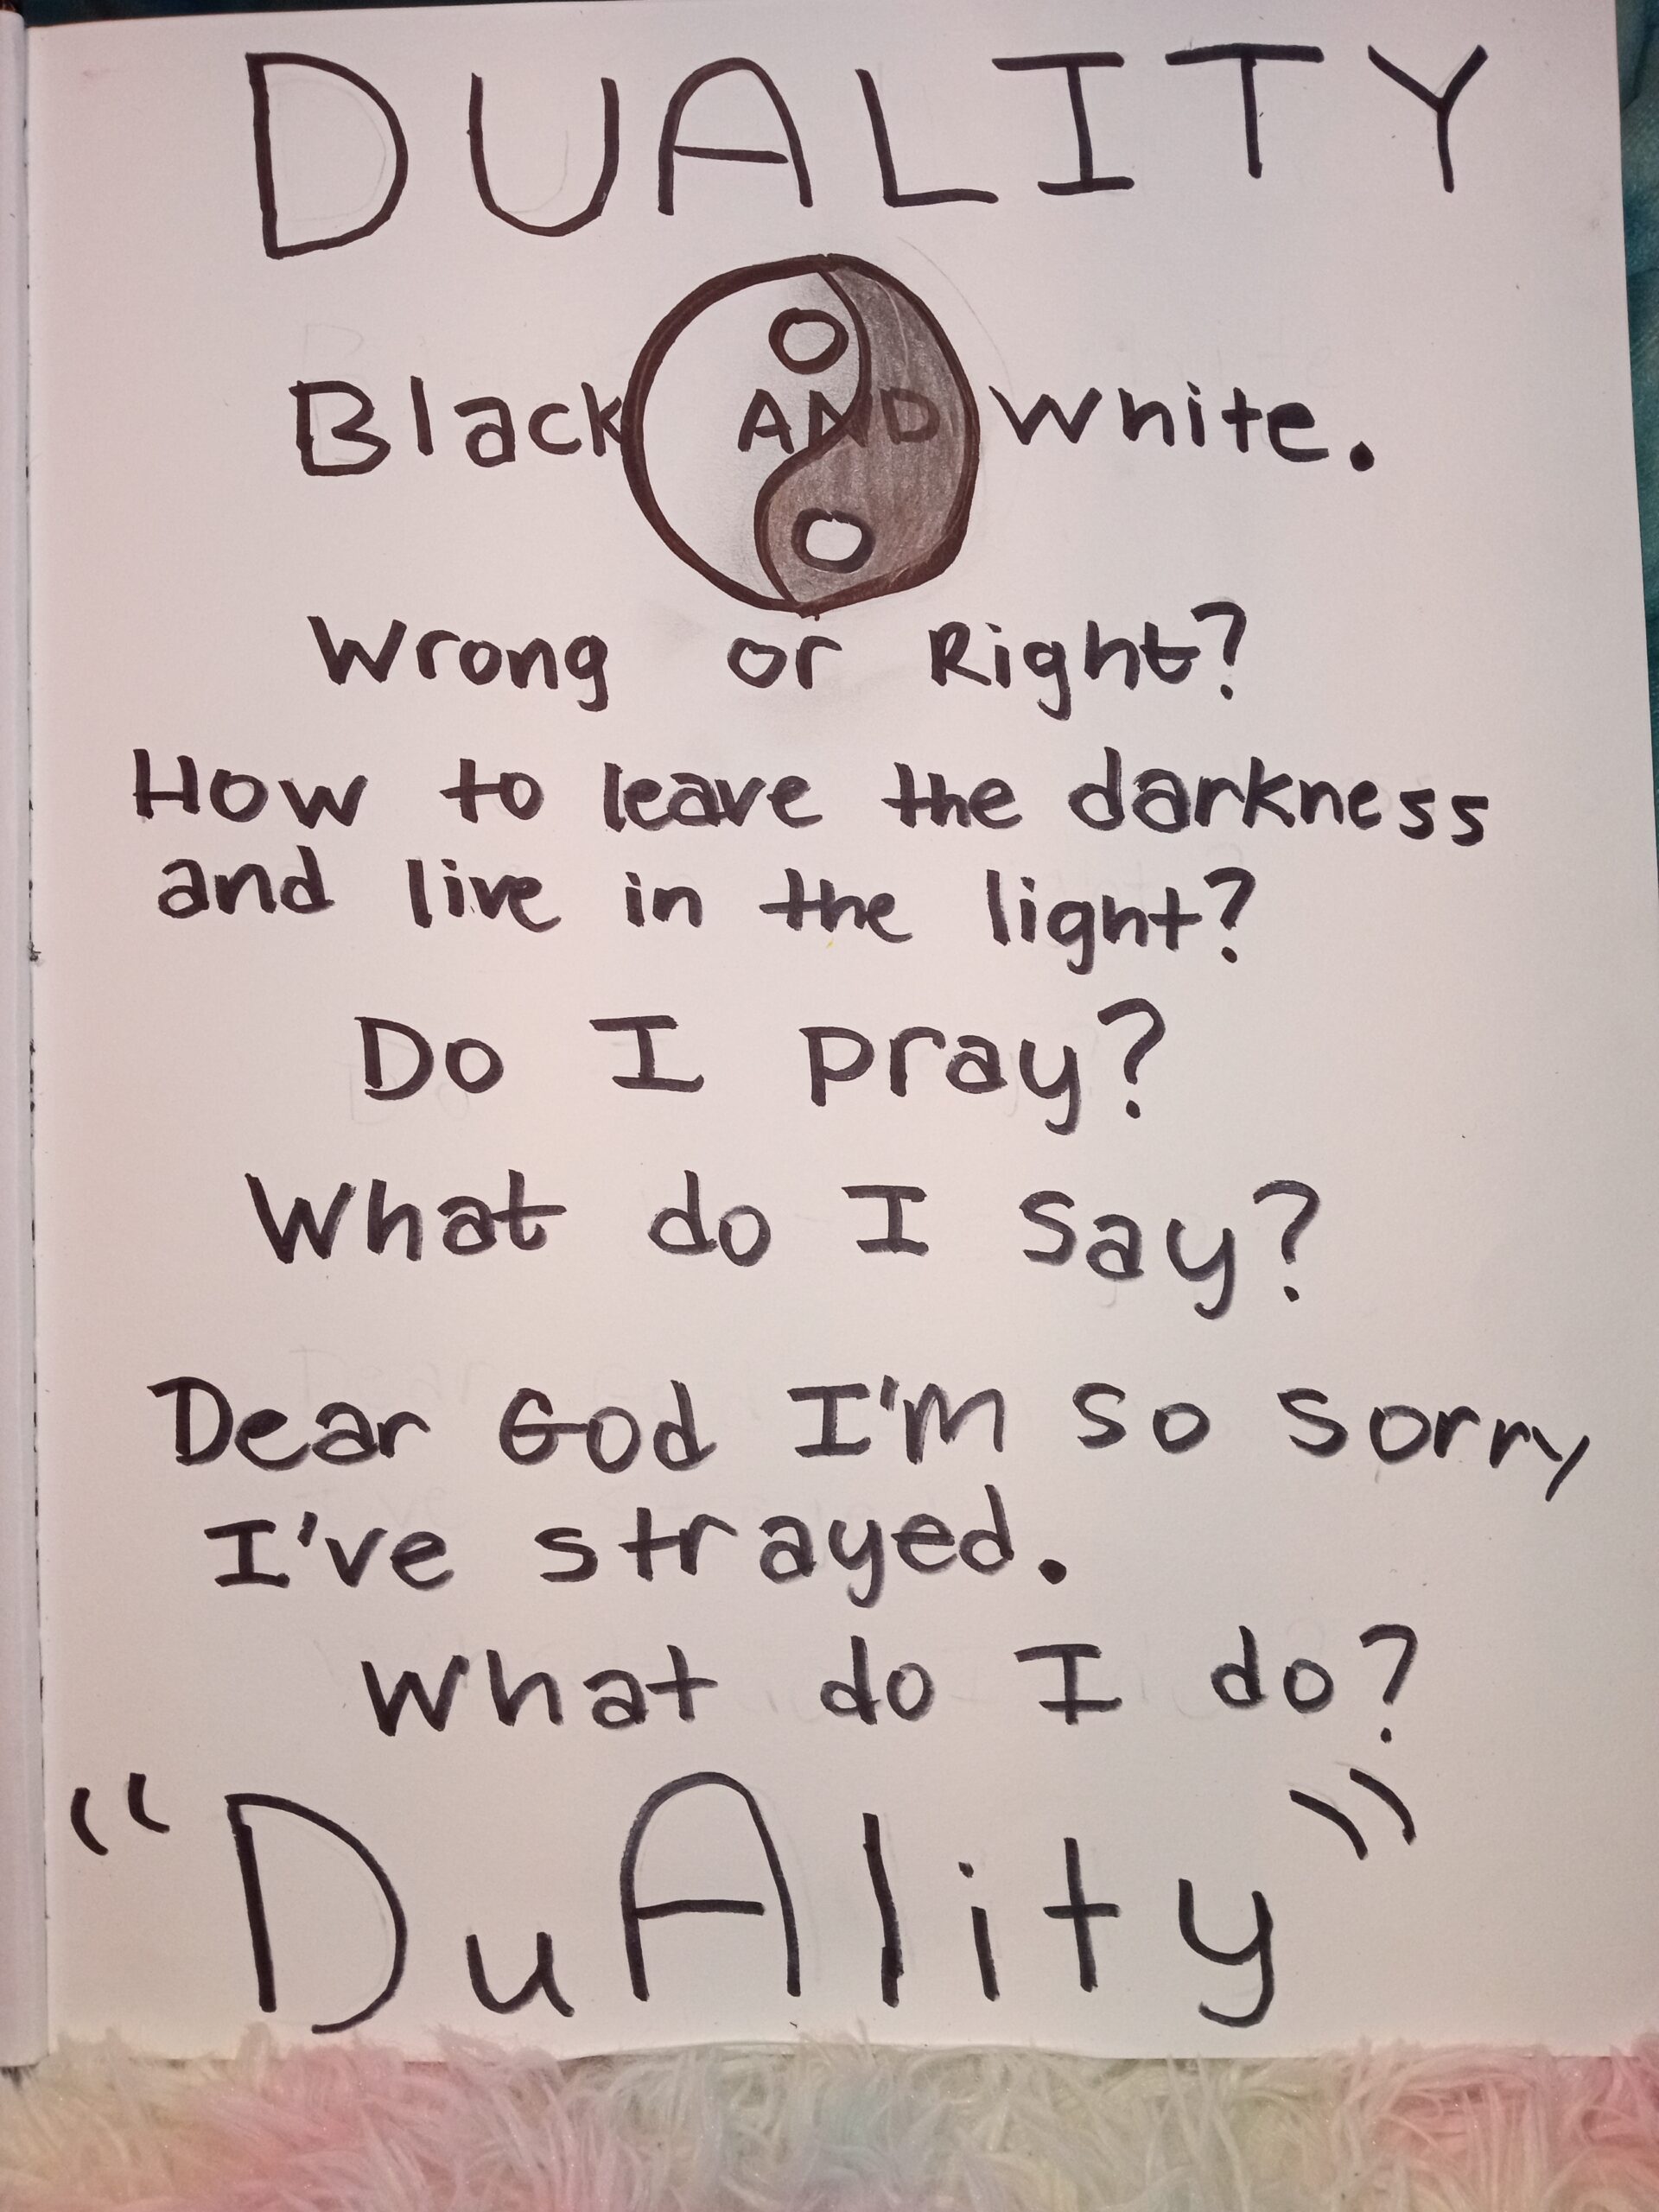 DUALITY
Black AND White.
Wrong or Right?
How to leave the darkness
and live in the light?
Do I pray?
What do I say?
Dear God I'm so sorry
I've strayed.
What do I do?
"DuAlity"